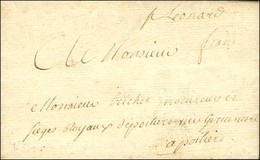 p Leonard
A Monsieur
franc
Monsieur Richet procureur es
sieges Royaux de poitiers rue
a poitiers